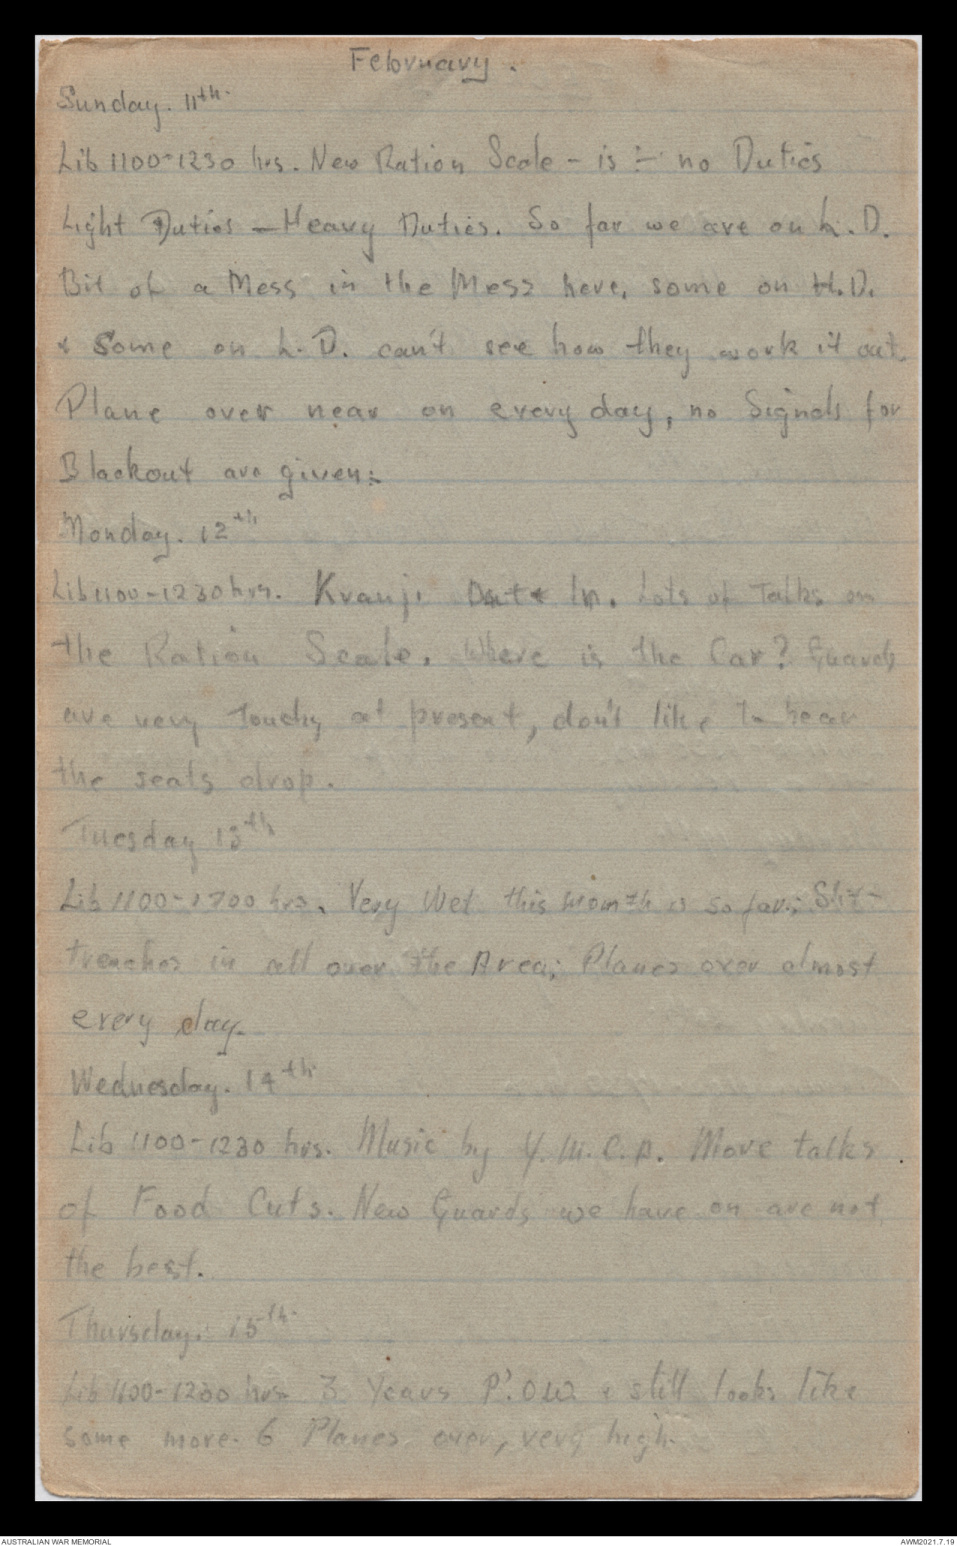 February.
Sunday. 11th.
Lib 1100-1230 hrs. New Ration Scale - is :- no Duties
Light Duties - Heavy Duties. So far we are on L.D.
Bit of a Mess in the Mess here, some on H.D.
& Some on L.D. can't see how they work it out.
Plane over near on every day, no Signals for
Blackout are given:-
Monday. 12th
Lib 1100-1230 hrs. Kranji Out & In. Lots of Talks on
the Ration Scale. Where is the Car? Guards
are very Touchy at present, don't like to hear
the seats drop.
Tuesday 13th
Lib 1100-1700 hrs. Very Wet this month is so far; Slit-
trenches in all over the Area; Planes over almost
every day.
Wednesday. 14th.
Lib 1100-1230 hrs. Music by Y.M.C.A. More talks
of Food Cuts. New Guards we have on are not
the best.
Thursday. 15th.
Lib 1100-1230 hrs 3 Years P.O.W & still looks like
some more. 6 Planes over, very high.
AUSTRALIAN WAR MEMORIAL
AWM2021.7.19